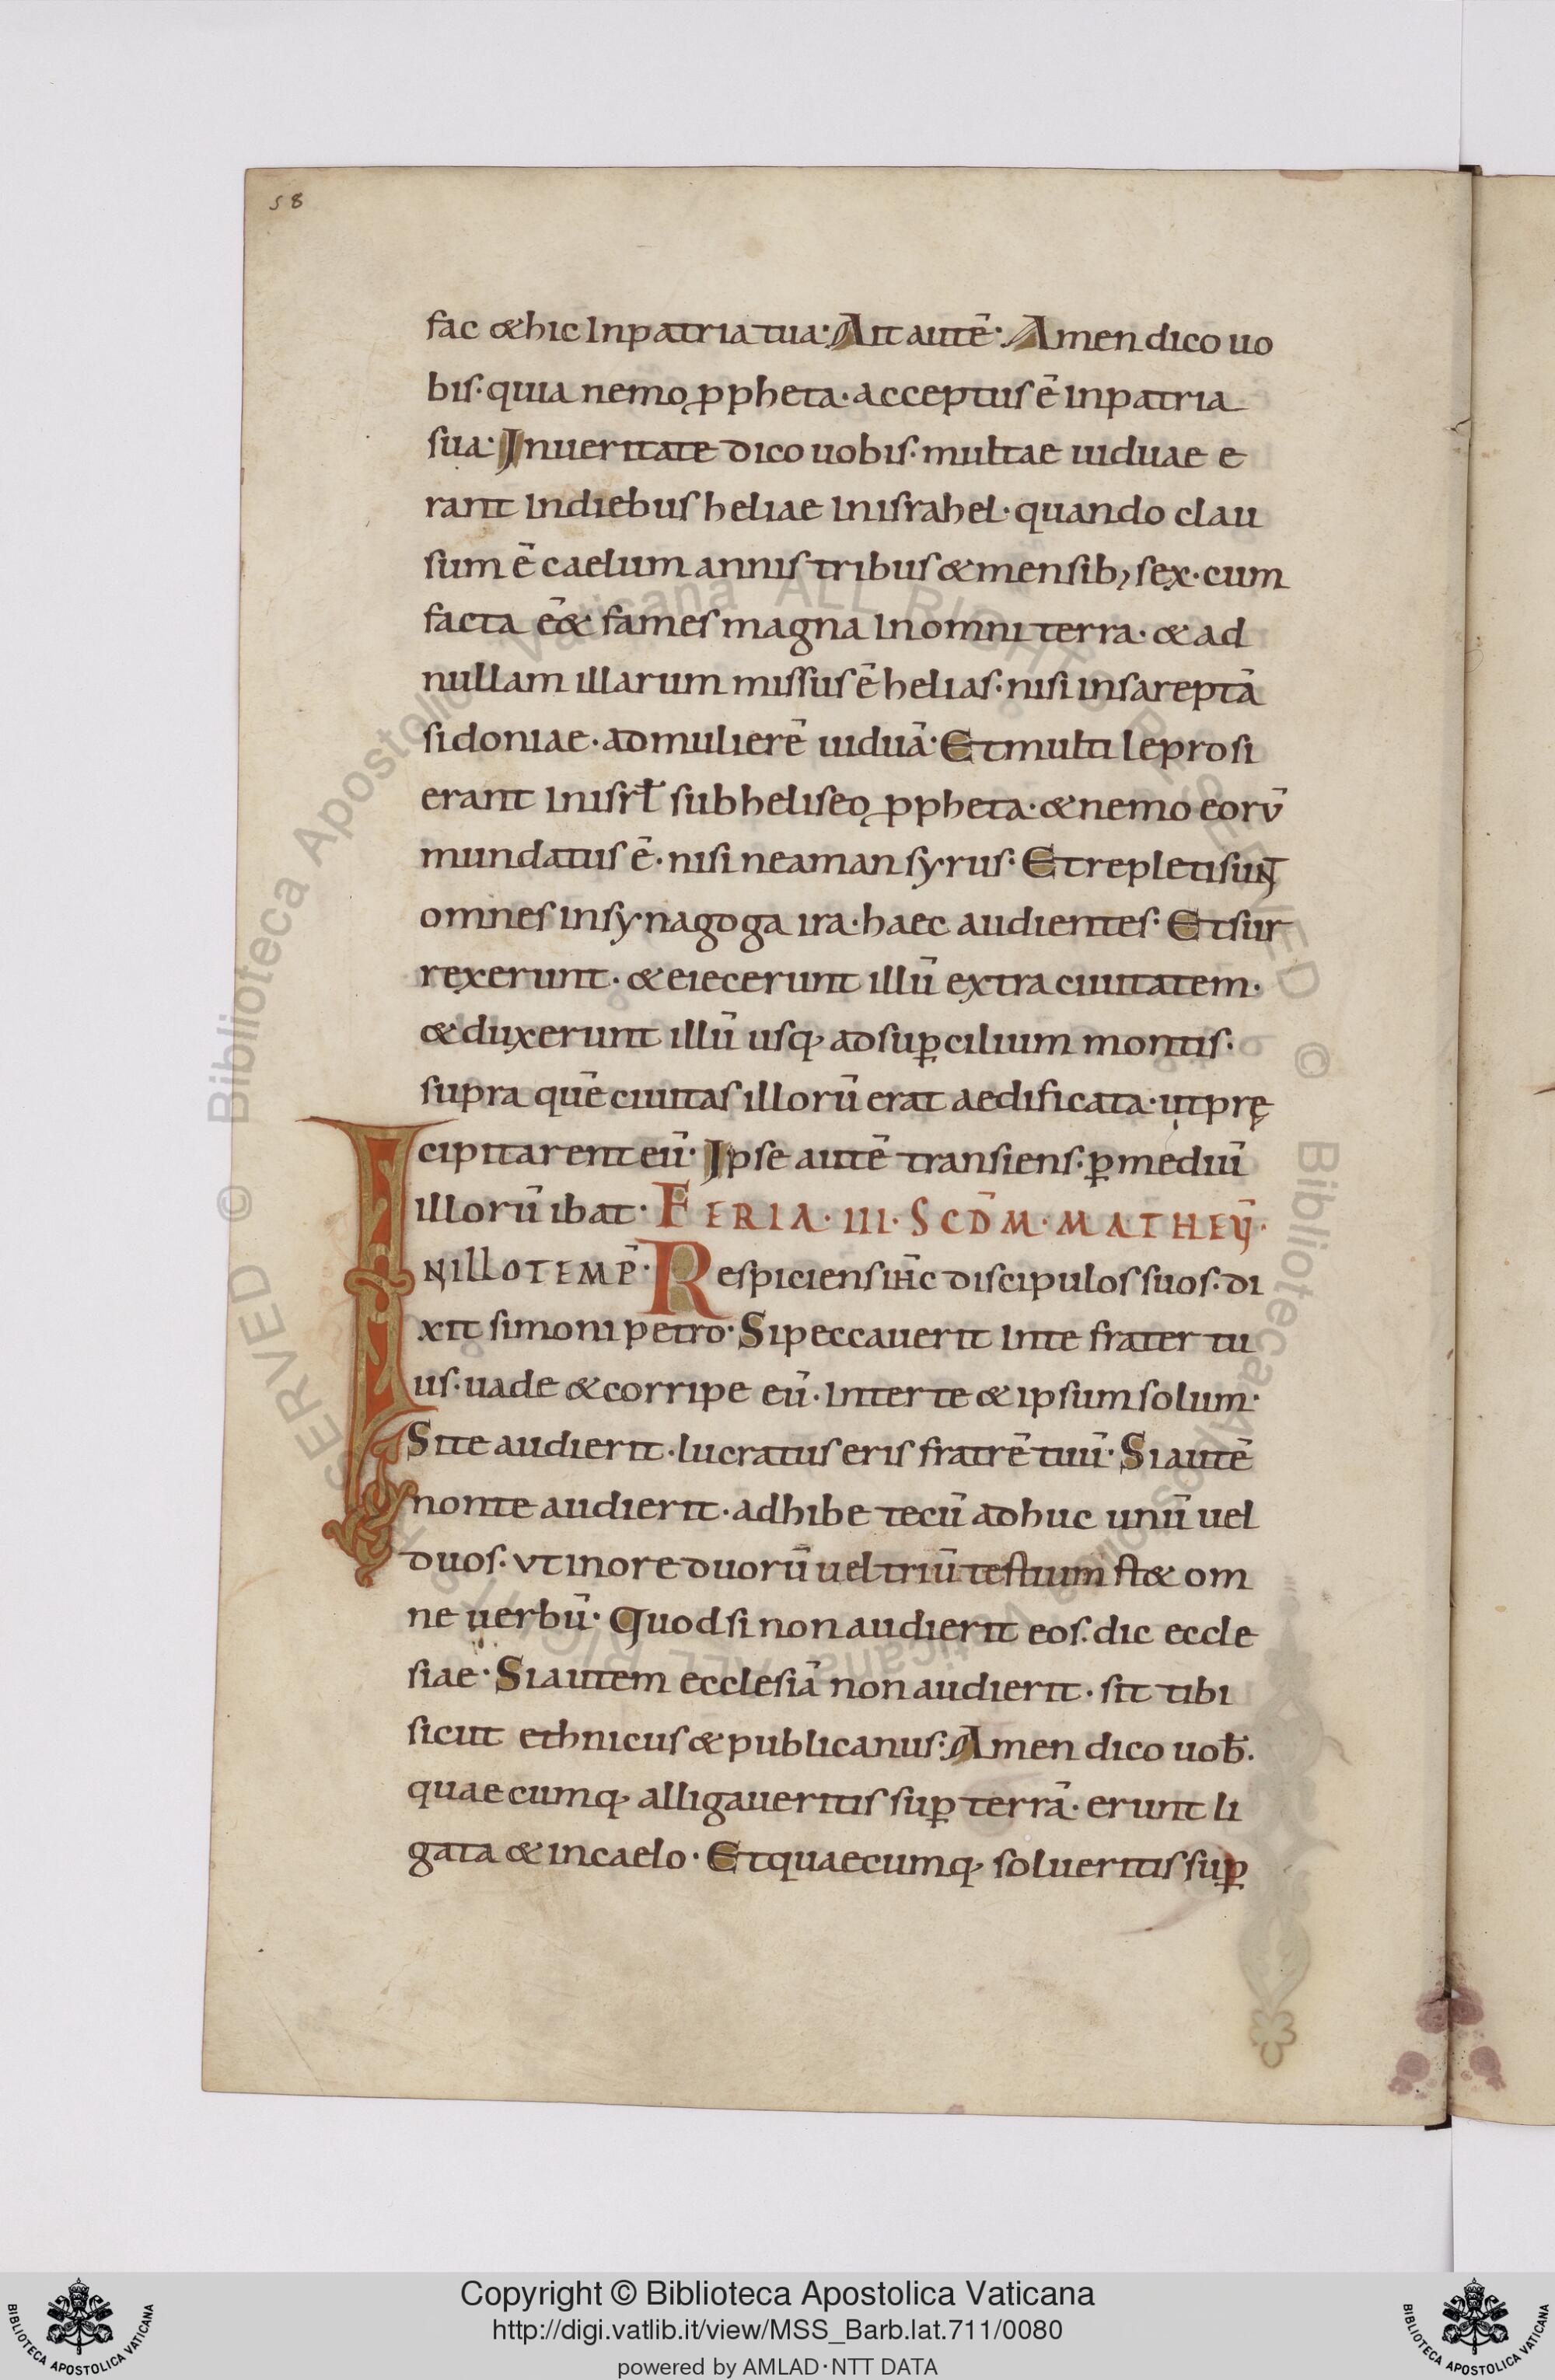 58
fac & hic In patria tua· Ait autē· Amen dico uo
bis· quia nemo ꝓpheta· acceptus ē in patria
sua· In ueritate dico uobis· multae uiduae e
rant In diebus heliae In israhel· quando clau
sum ē caelum annis tribus & mensib; sex· cum
facta ēē& fames magna In omni terra· & ad
nullam illarum missus ē helias· nisi in sareptā
sidoniae· ad mulierē uiduā· Et multi leprosi
erant In isrł sub heliseo ꝓpheta· & nemo eorū
mundatus ē· nisi neaman syrus· Et repleti sunt
omnes in synagoga ira· haec audientes· Et sur
rexerunt· & eiecerunt illū extra ciuitatem·
& duxerunt illū usq· ad suꝑcilium montis·
supra quē ciuitas illorū erat aedificata· ut prę
cipitarent eū· Ipse autē transiens· ꝑ mediū
illorū ibat· FERIA· III· SCD̄M· MATHEȲ·
IN ILLO TEMP̄· Respiciens ih̄c discipulos suos· di
xit simoni petro· Si peccauerit In te frater tu
us· uade & corripe eū· Inter te & ipsum solum·
Si te audierit· lucratus eris fratrē tuū· Si autē
non te audierit· adhibe tecū adhuc unū uel
duos· ut in ore duorū uel triū testium st& om
ne uerbū· Quod si non audierit eos· dic eccle
siae· Si autem ecclesiā non audierit· sit tibi
sicut ethnicus & publicanus· Amen dico uob̄·
quaecumq· alligaueritis suꝑ terrā· erunt li
gata & in caelo· Et quaecumq· solueritis suꝑ
© Biblioteca Apostolica Vaticana ALL RIGHTS RESERVED © Biblioteca Apostolica Vaticana ALL RIGHTS RESERVED
Copyright © Biblioteca Apostolica Vaticana
http://digi.vatlib.it/view/MSS_Barb.lat.711/0080
powered by AMLAD·NTT DATA
BIBLIOTECA APOSTOLICA VATICANA
BIBLIOTECA APOSTOLICA VATICANA